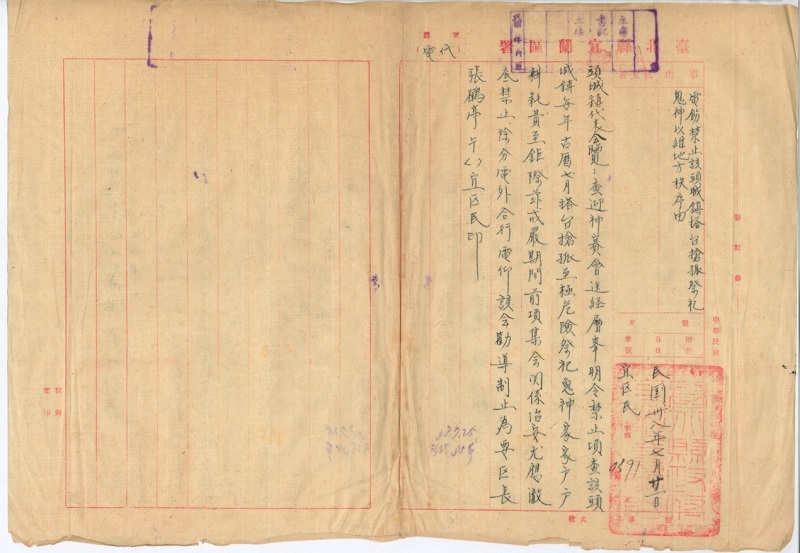 臺北縣宜蘭區署
代電
事由
電飭禁止該頭城鎮搭台搶孤祭祀
鬼神以維地方秩序由
民国卅八年七月廿一日
宜区民
0391
頭城鎮代表会覽：查迎神賽會迭経層奉明令禁止項查該頭
城鎮每年古曆七月搭台搶孤至極危險祭祀鬼神家家戶戶
料耗費至鉅際茲戒嚴期間前項集会関係治安尤應澈
底禁止除分電外合行電仰該会勸導制止為要区長
張鶴亭午()宜区民印